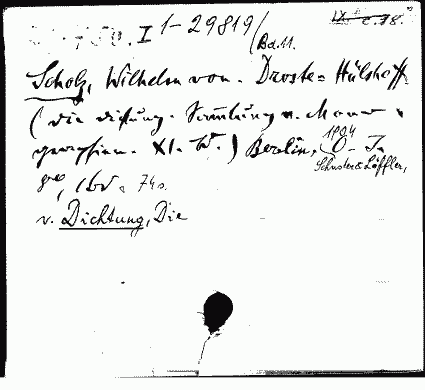 750. I 1-29819/Bd.11.
Scholz, Wilhelm von. Droste-Hülshoff
(Die Dichtung. Sammlung v. Mono-
graphien. XI. Bd.) Berlin, O. J.
1904
Schuster & Löffler,
8°, 1 Bd. 74 s.
v. Dichtung, Die